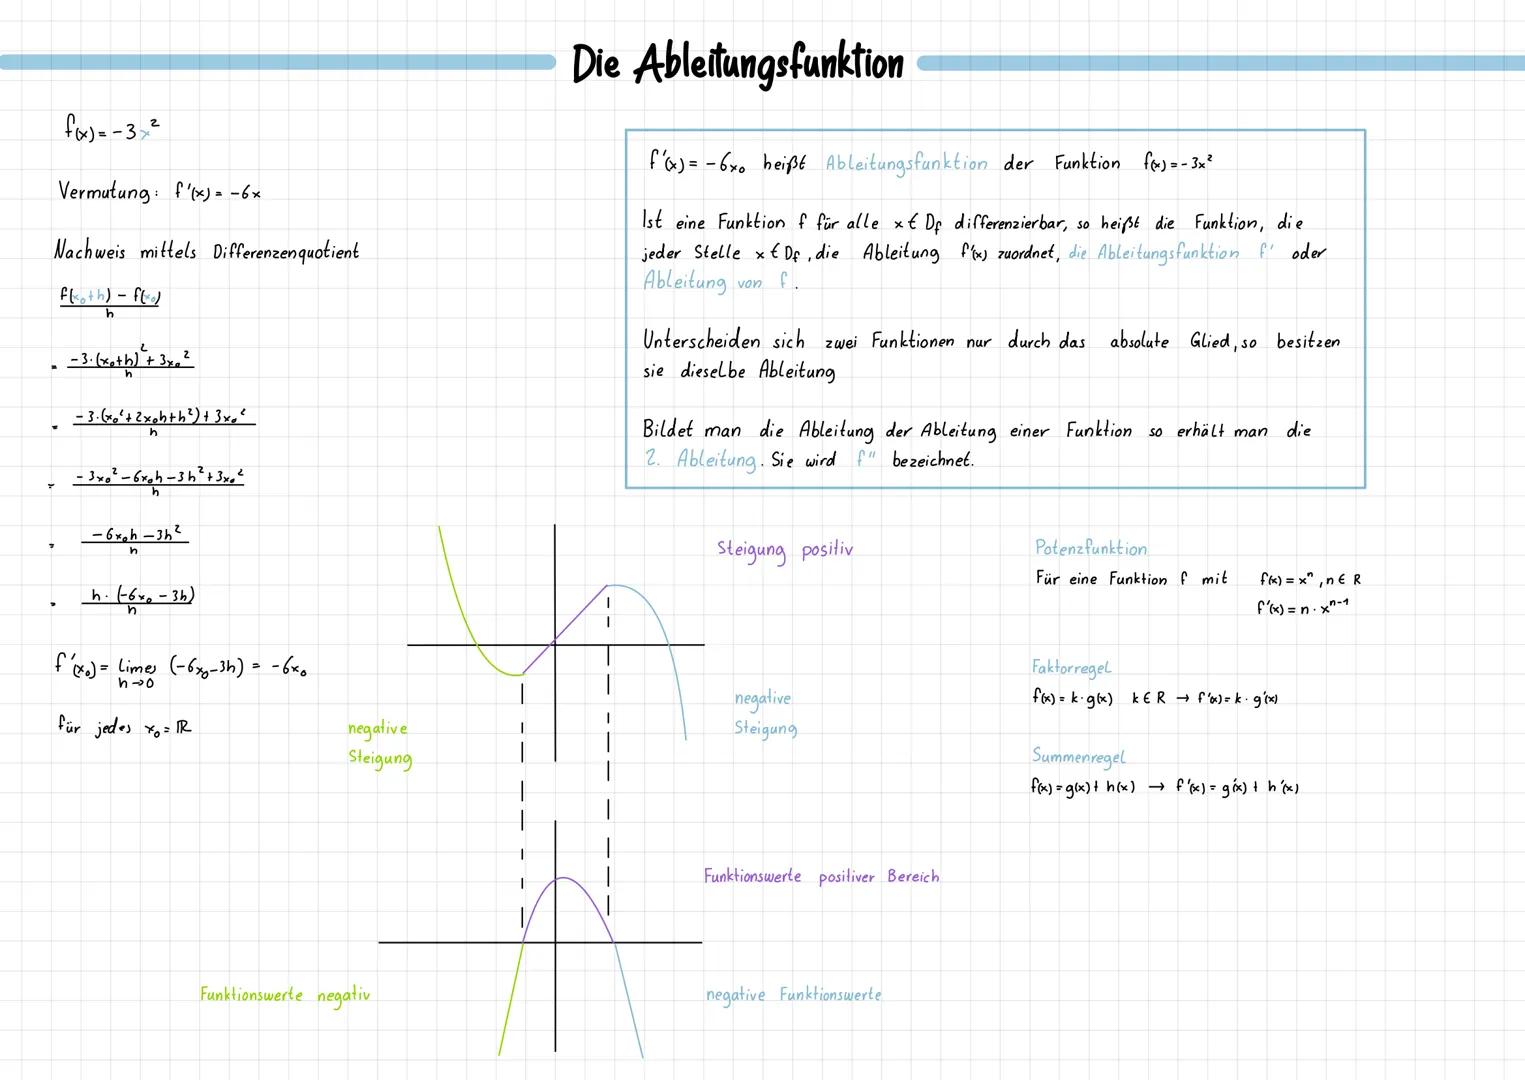 Die Ableitungsfunktion
f(x) = -3x²
Vermutung: f'(x) = -6x
Nachweis mittels Differenzenquotient
f(x₀+h) - f(x₀)
h
= -3·(x₀+h)² + 3x₀²
h
= -3·(x₀²+2x₀h+h²)+3x₀²
h
= -3x₀²-6x₀h-3h²+3x₀²
h
= -6x₀h-3h²
h
= h·(-6x₀-3h)
h
f'(x₀) = limes (-6x₀-3h) = -6x₀
h→0
für jedes x₀ = ℝ
f'(x) = -6x₀ heißt Ableitungsfunktion der Funktion f(x) = -3x²
Ist eine Funktion f für alle x € Df differenzierbar, so heißt die Funktion, die
jeder Stelle x € Df, die Ableitung f'(x) zuordnet, die Ableitungsfunktion f' oder
Ableitung von f.
Unterscheiden sich zwei Funktionen nur durch das absolute Glied, so besitzen
sie dieselbe Ableitung
Bildet man die Ableitung der Ableitung einer Funktion so erhält man die
2. Ableitung. Sie wird f" bezeichnet.
Steigung positiv
negative
Steigung
negative
Steigung
Funktionswerte positiver Bereich
Funktionswerte negativ
negative Funktionswerte
Potenzfunktion
Für eine Funktion f mit f(x) = xⁿ, n € R
f'(x) = n · xⁿ⁻¹
Faktorregel
f(x) = k·g(x) k € R → f'(x) = k·g'(x)
Summenregel
f(x) = g(x) + h(x) → f'(x) = g'(x) + h'(x)